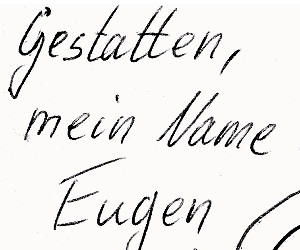 Gestatten,
mein Name
Eugen